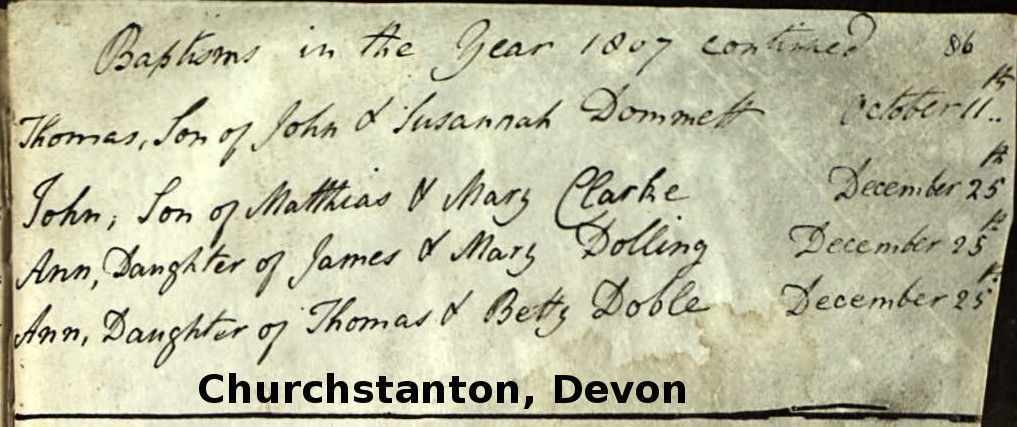 Baptisms in the Year 1807 continued 86
Thomas, Son of John & Susannah Dommett October 11th..
John, Son of Matthias & Mary Clarke December 25th
Ann, Daughter of James & Mary Dolling December 25th
Ann, Daughter of Thomas & Betty Doble December 25th
Churchstanton, Devon